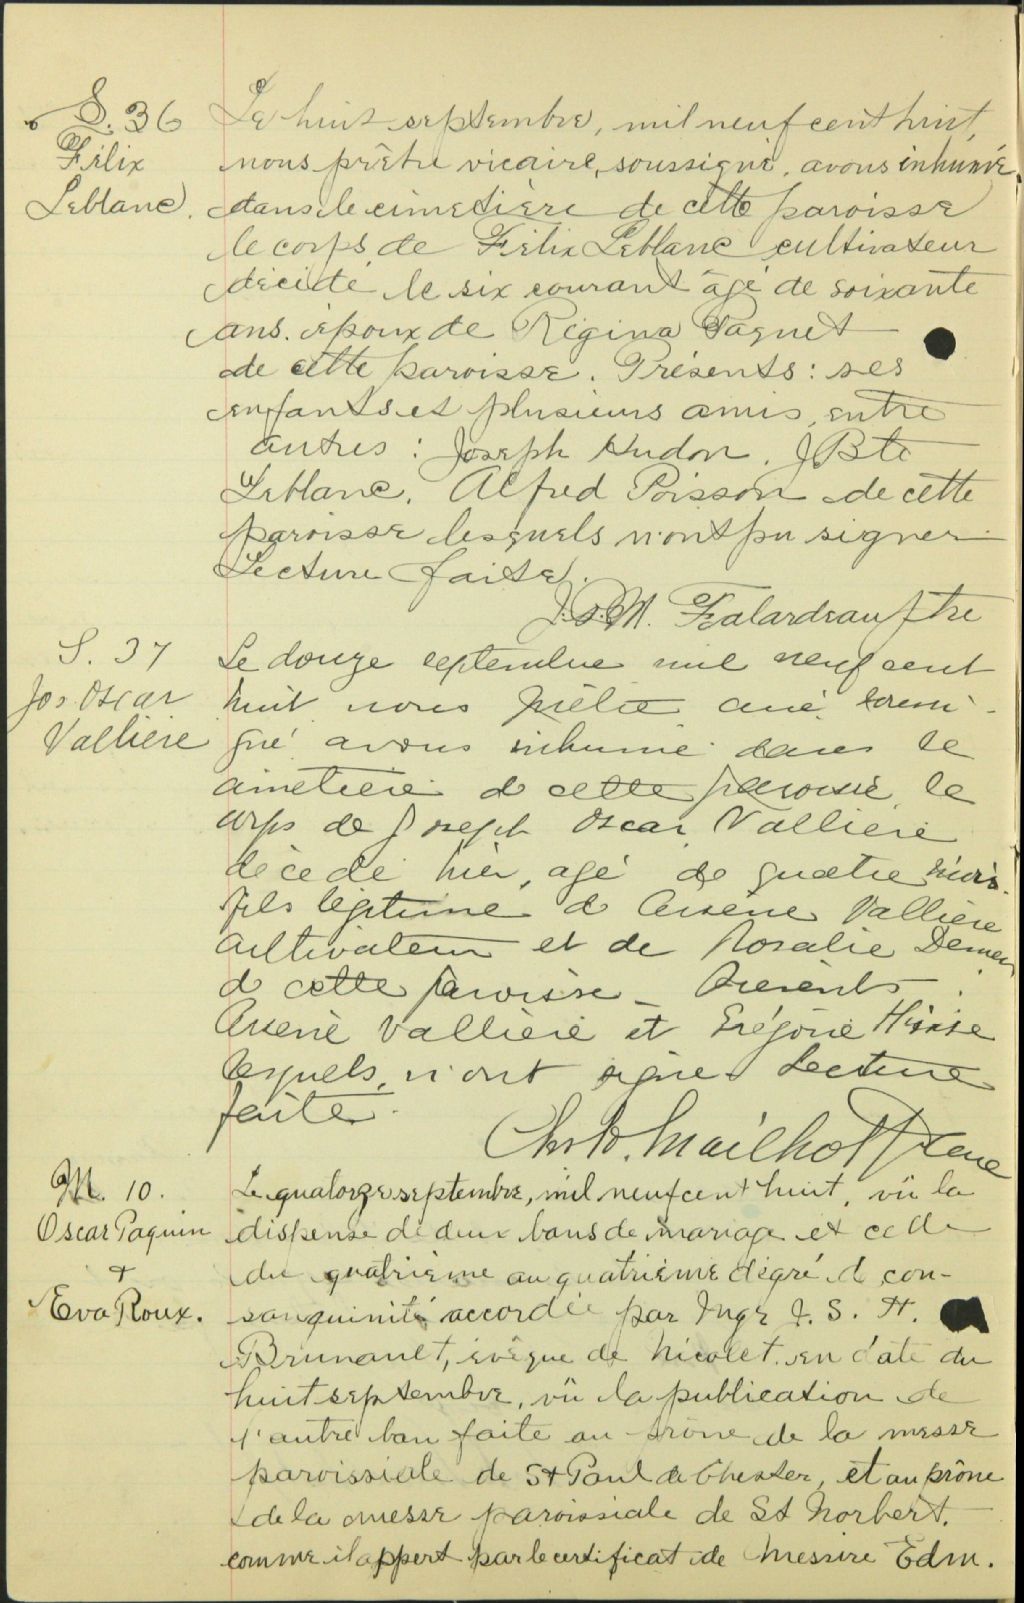 S. 36
Félix
Leblanc.
Le huit septembre, mil neuf cent huit,
nous prêtre vicaire, soussigné, avons inhumé
dans le cimetière de cette paroisse
le corps de Félix Leblanc cultivateur
décédé le six courant âgé de soixante
ans. époux de Régina Paquet
de cette paroisse. Présents : ses
enfants et plusieurs amis, entre
autres : Joseph Hudon, J. Bte
Leblanc, Alfred Poisson de cette
paroisse lesquels n'ont pu signer
Lecture faite.
Falardeau Ptre
S. 37
Jos Oscar
Vallière
Le douze septembre mil neuf cent
huit nous prêtre curé soussi-
gné avons inhumé dans le
cimetière de cette paroisse le
corps de Joseph Oscar Vallière
décédé hier, agé de quatre mois
fils légitime d'Arsène Vallière
cultivateur et de Rosalie Demers
de cette paroisse - Présents :
Arsène Vallière et Grégoire
lesquels n'ont signé Lecture
faite.
Mailhot Ptre Curé
M. 10.
Oscar Paquin
+
Eva Roux.
Le quatorze septembre, mil neuf cent huit, vû la
dispense de deux bans de mariage et celle
du quatrième au quatrième dégré de con-
sanguinité accordée par Mgr J. S. H.
Brunault, évêque de Nicolet en date du
huit septembre, vû la publication de
l'autre ban faite au prône de la messe
paroissiale de St Paul de Chester, et au prône
de la messe paroissiale de St Norbert.
comme il appert par le certificat de Messire Edm.